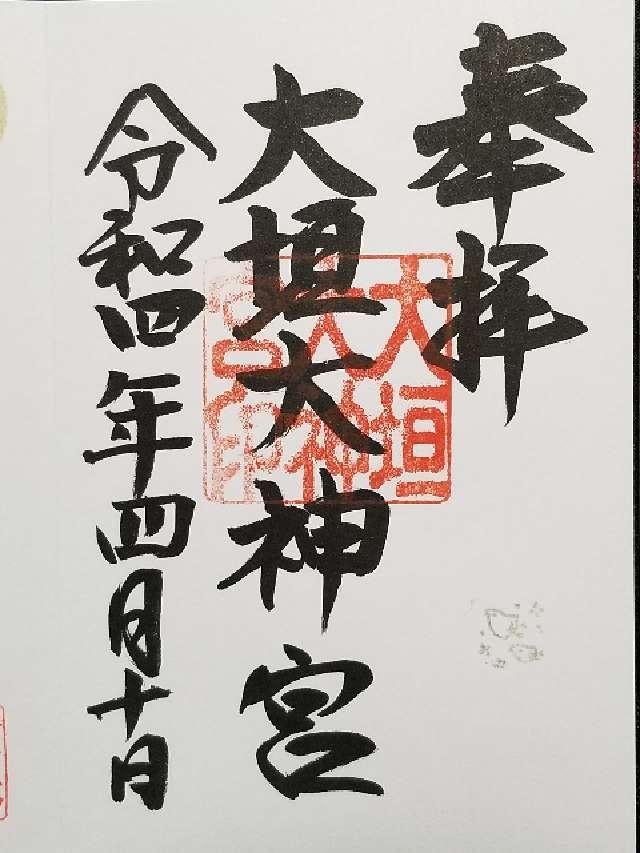 奉拝
大垣大神宮
大垣
大神
宮印
令和四年四月十日